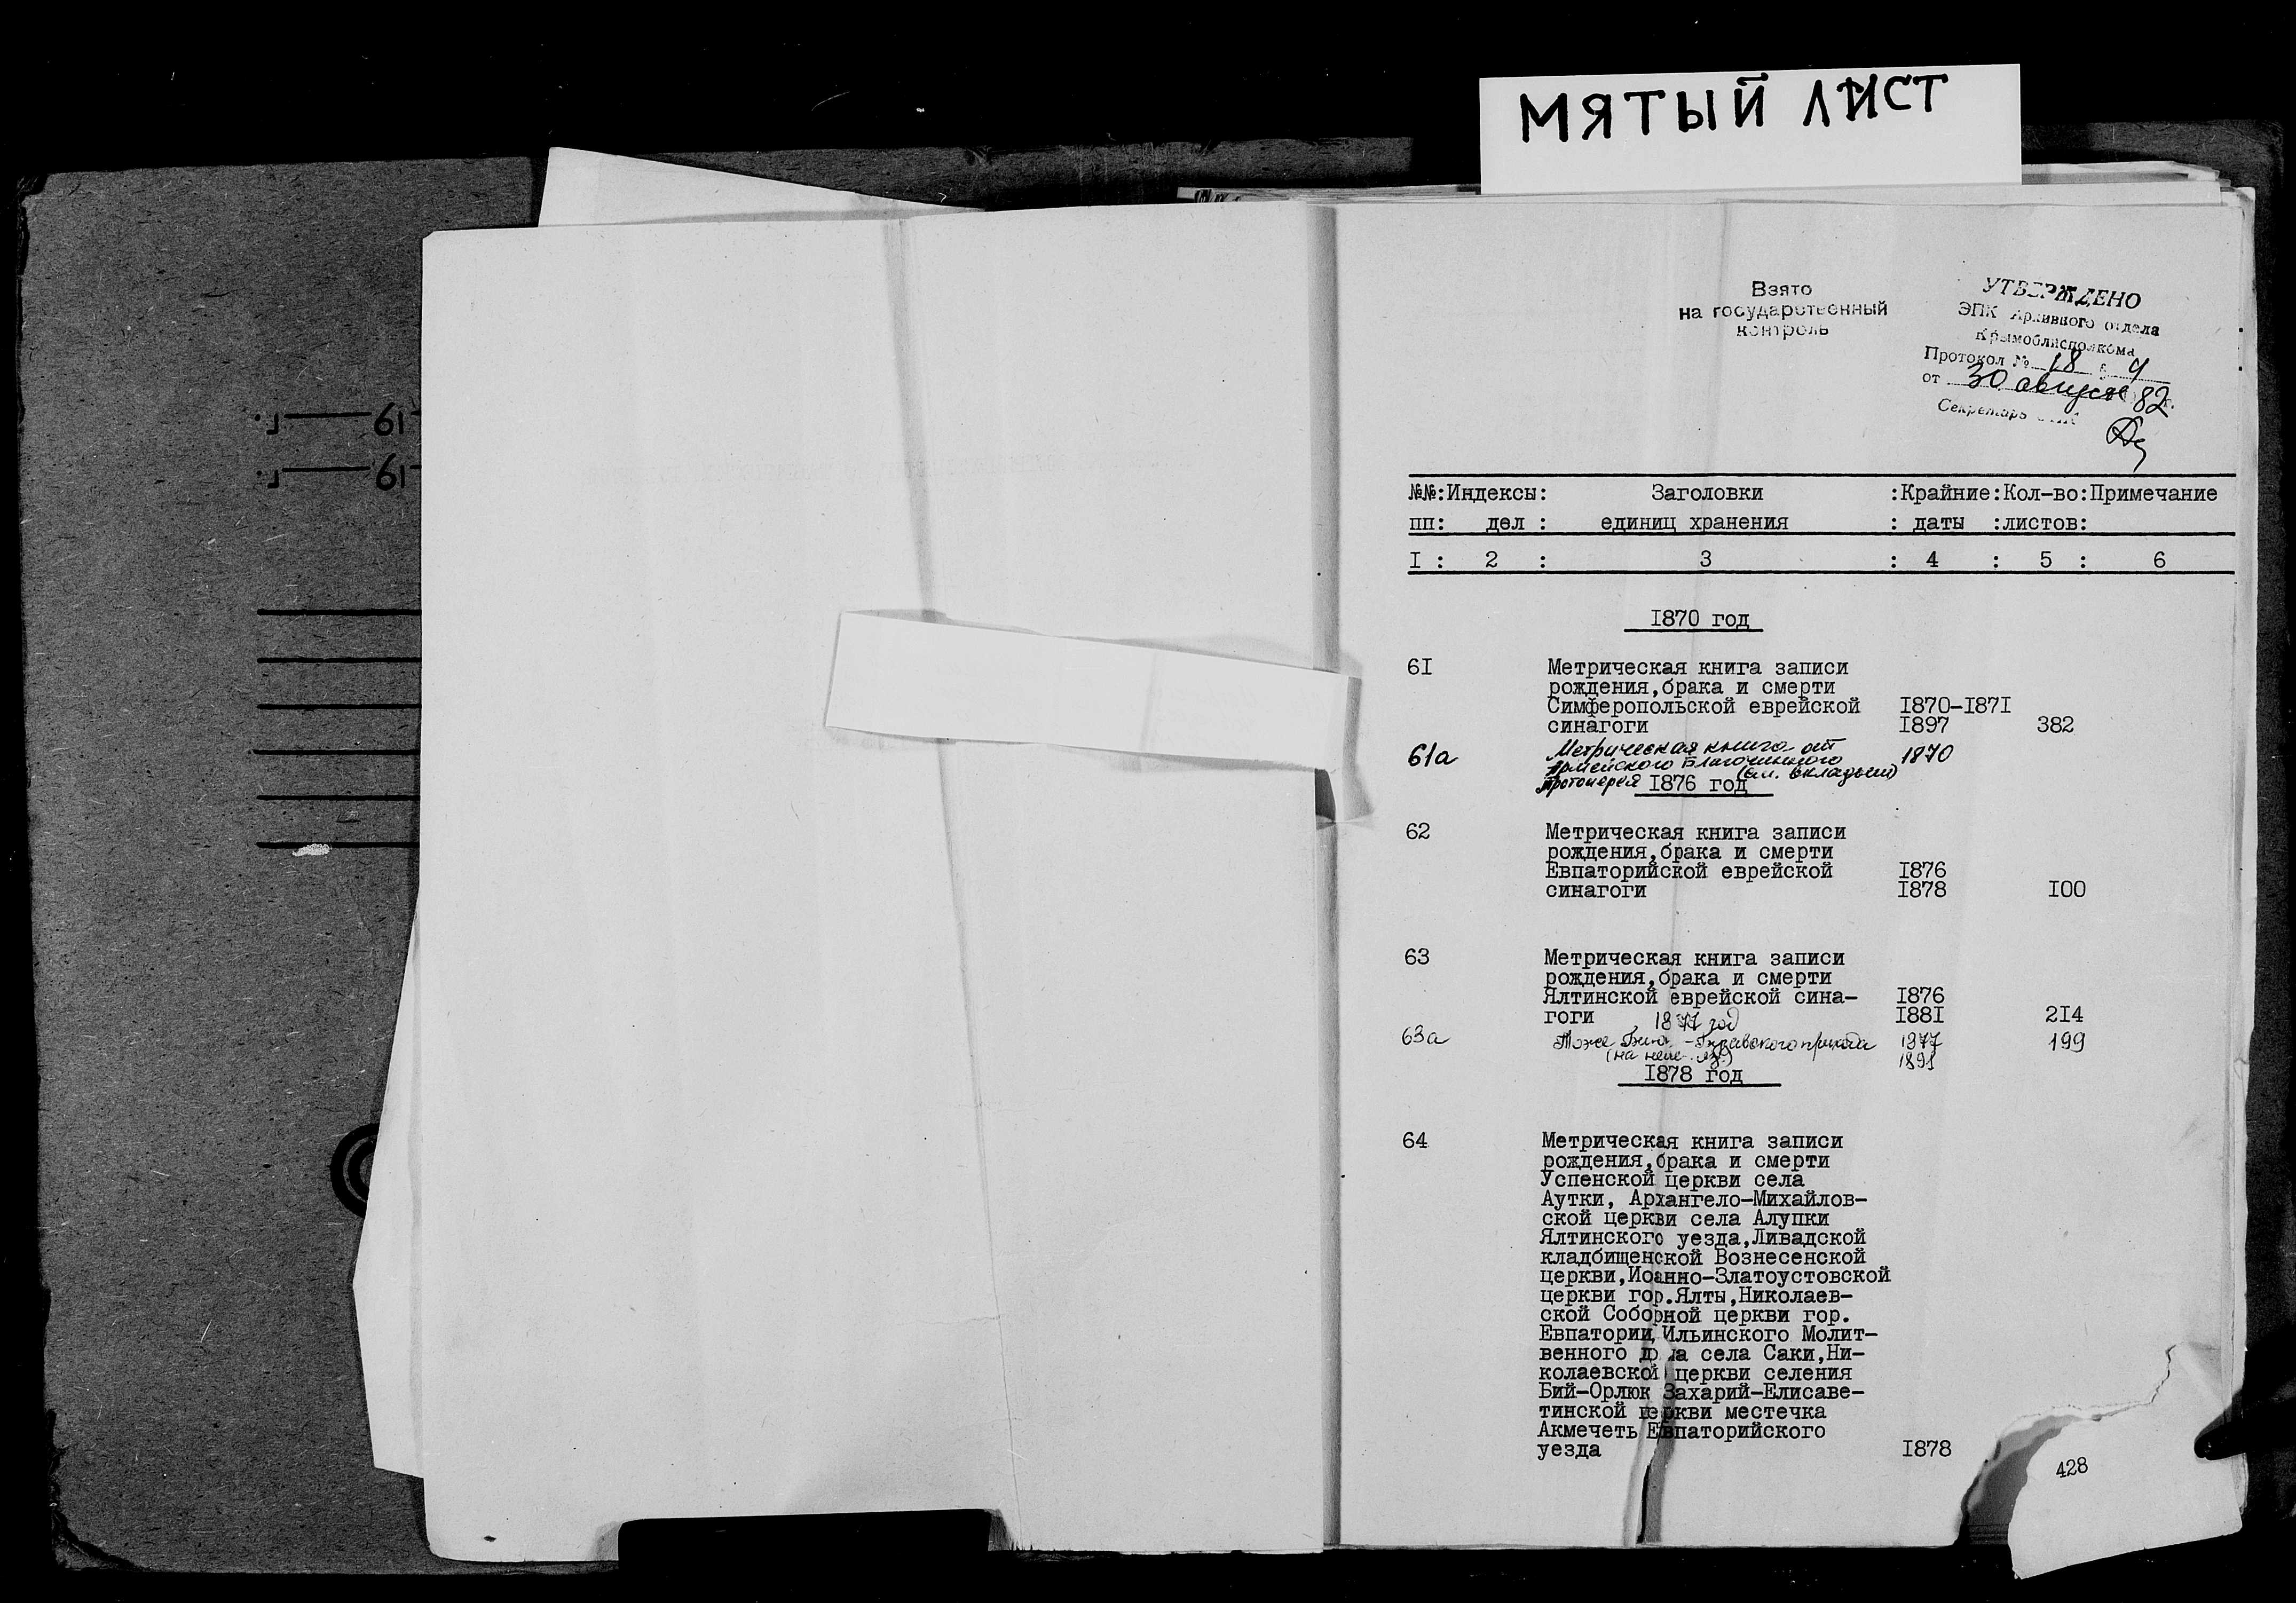 МЯТЫЙ ЛИСТ
Взято
на государственный
контроль
УТВЕРЖДЕНО
ЭПК Архивного отдела
Крымоблисполкома
Протокол № 18 § 4
от 30 августа 82 г.
Секретарь ЭПК
19 г.
19 г.
№№:Индексы: Заголовки :Крайние:Кол-во:Примечание
пп: дел : единиц хранения : даты :листов:
I : 2 : 3 : 4 : 5 : 6
I870 год
6I Метрическая книга записи
рождения,брака и смерти
Симферопольской еврейской I870-I87I
синагоги I897 382
61а Метрическая книга от 1870
армейского благочинного
протоиерея (см. вкладыш)
I876 год
62 Метрическая книга записи
рождения,брака и смерти
Евпаторийской еврейской I876
синагоги I878 I00
63 Метрическая книга записи
рождения,брака и смерти
Ялтинской еврейской сина- I876
гоги I88I 2I4
1877 год
63а Тоже прихода 1877
(на нем. яз.) 1891 199
I878 год
64 Метрическая книга записи
рождения,брака и смерти
Успенской церкви села
Аутки, Архангело-Михайлов-
ской церкви села Алупки
Ялтинского уезда,Ливадской
кладбищенской Вознесенской
церкви,Иоанно-Златоустовской
церкви гор.Ялты,Николаев-
ской Соборной церкви гор.
Евпатории,Ильинского Молит-
венного дома села Саки,Ни-
колаевской церкви селения
Бий-Орлюк Захарий-Елисаве-
тинской церкви местечка
Акмечеть Евпаторийского
уезда I878 428